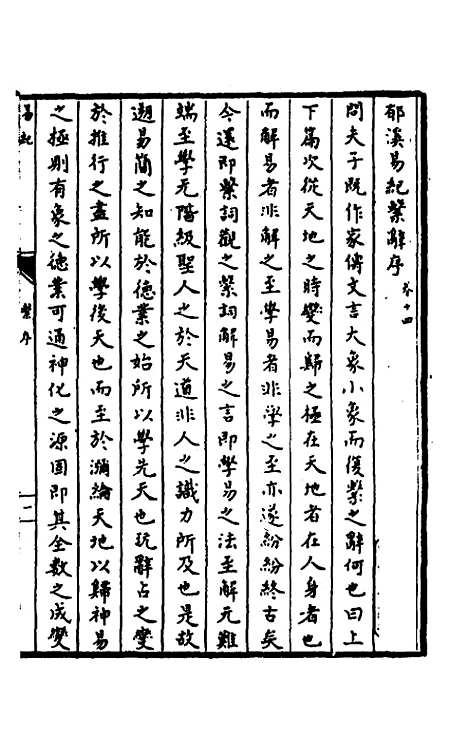 郁溪易紀繫辭序 卷十四
問夫子既作家傳文言大象小象而復繫之辭何也曰上
下篇次從天地之時變而歸之極在天地者在人身者也
而解易者非解之至學易者非學之至亦遂紛紛終古矣
今還即繫詞觀之繫詞解易之言即學易之法至解元難
端至學无階級聖人之於天道非人之識力所及也是故
遡易簡之知能於德業之始所以學先天也玩辭占之變
於推行之盡所以學後天也而至於瀰綸天地以歸神易
之極則有象之德業可通神化之源固即其全數之成變
易紀
繫序
一